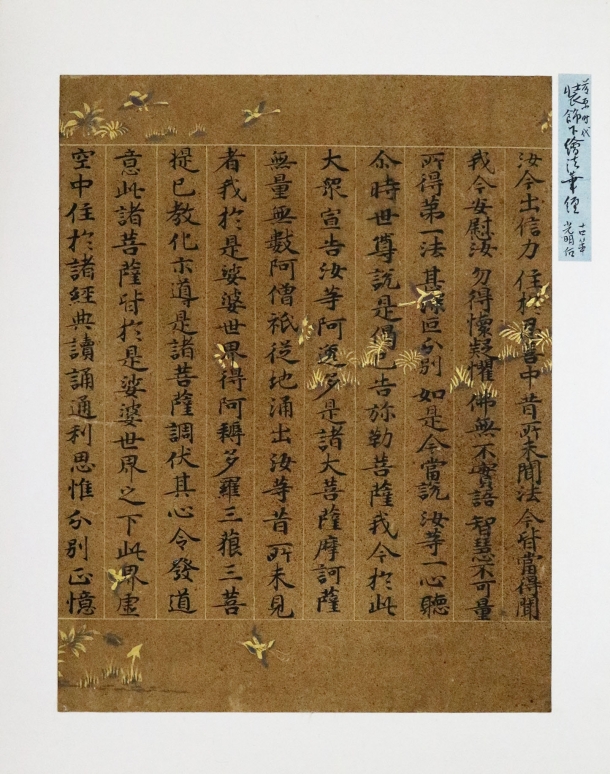 汝今出信力 住於忍善中 昔所未聞法 今皆當得聞
我今安慰汝 勿得懷疑懼 佛無不實語 智慧不可量
所得第一法 甚深叵分別 如是今當說 汝等一心聽
尒時世尊說是偈已告弥勒菩薩我今於此
大衆宣告汝等阿逸多是諸大菩薩摩訶薩
無量無數阿僧祇從地涌出汝等昔所未見
者我於是娑婆世界得阿耨多羅三藐三菩
提已教化示導是諸菩薩調伏其心令發道
意此諸菩薩皆於是娑婆世界之下此界虛
空中住於諸經典讀誦通利思惟分別正憶
時代
裝飾下繪法華經
光明后